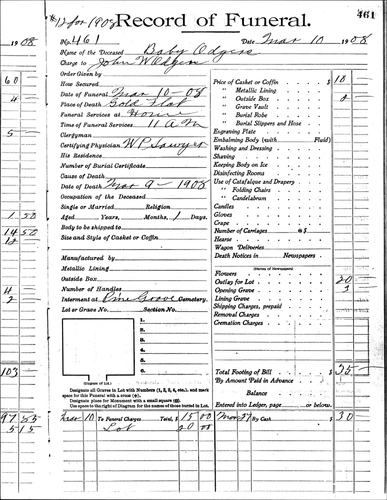 #12 for 1908
Record of Funeral.
461
1908
No. 461
Date Mar 10 1908
Name of the Deceased Baby Odgers
Charge to John W Odgers
Order Given by
How Secured
60
Date of Funeral Mar 10-08
4
Place of Death Gold Flat
Funeral Services at Home
Time of Funeral Services 11 A.M
5
Clergyman
Certifying Physician W P Sawyer
His Residence
Number of Burial Certificate
Cause of Death
Date of Death Mar 9 - 1908
Occupation of the Deceased
Single or Married Religion
1 50
Aged Years, Months, 1 Days.
Body to be shipped to
14 50
Size and Style of Casket or Coffin
12
Manufactured by
Metallic Lining
Outside Box
Number of Handles
Interment at Pine Grove Cemetery.
2
Lot or Grave No. Section No.
1.
2.
3.
4.
5.
6.
(Diagram of Lot.)
103
Designate all Graves in Lot with Numbers (1, 2, 3, 4, etc.), and mark
space for this Funeral with a cross (+).
Designate place for Monument with a small square (□).
Use space to the right of Diagram for the names of those buried in Lot.
Price of Casket or Coffin $ 18
" Metallic Lining
" Outside Box
" Grave Vault
" Burial Robe
" Burial Slippers and Hose
Engraving Plate
Embalming Body (with Fluid)
Washing and Dressing
Shaving
Keeping Body on Ice
Disinfecting Rooms
Use of Catafalque and Drapery
" Folding Chairs
" Candelabrum
Candles
Gloves
Crape
Number of Carriages @ $
Hearse
Wagon Deliveries
Death Notices in Newspapers
(Names of Newspapers)
Flowers
Outlay for Lot 20
Opening Grave 3
Lining Grave
Shipping Charges, prepaid
Removal Charges
Cremation Charges
Total Footing of Bill $ 35
By Amount Paid in Advance
Balance
Entered into Ledger, page or below.
97 55
Mar 10 To Funeral Charges Total, $ 15 00
By Cash $ 30
515
Lot 20 00